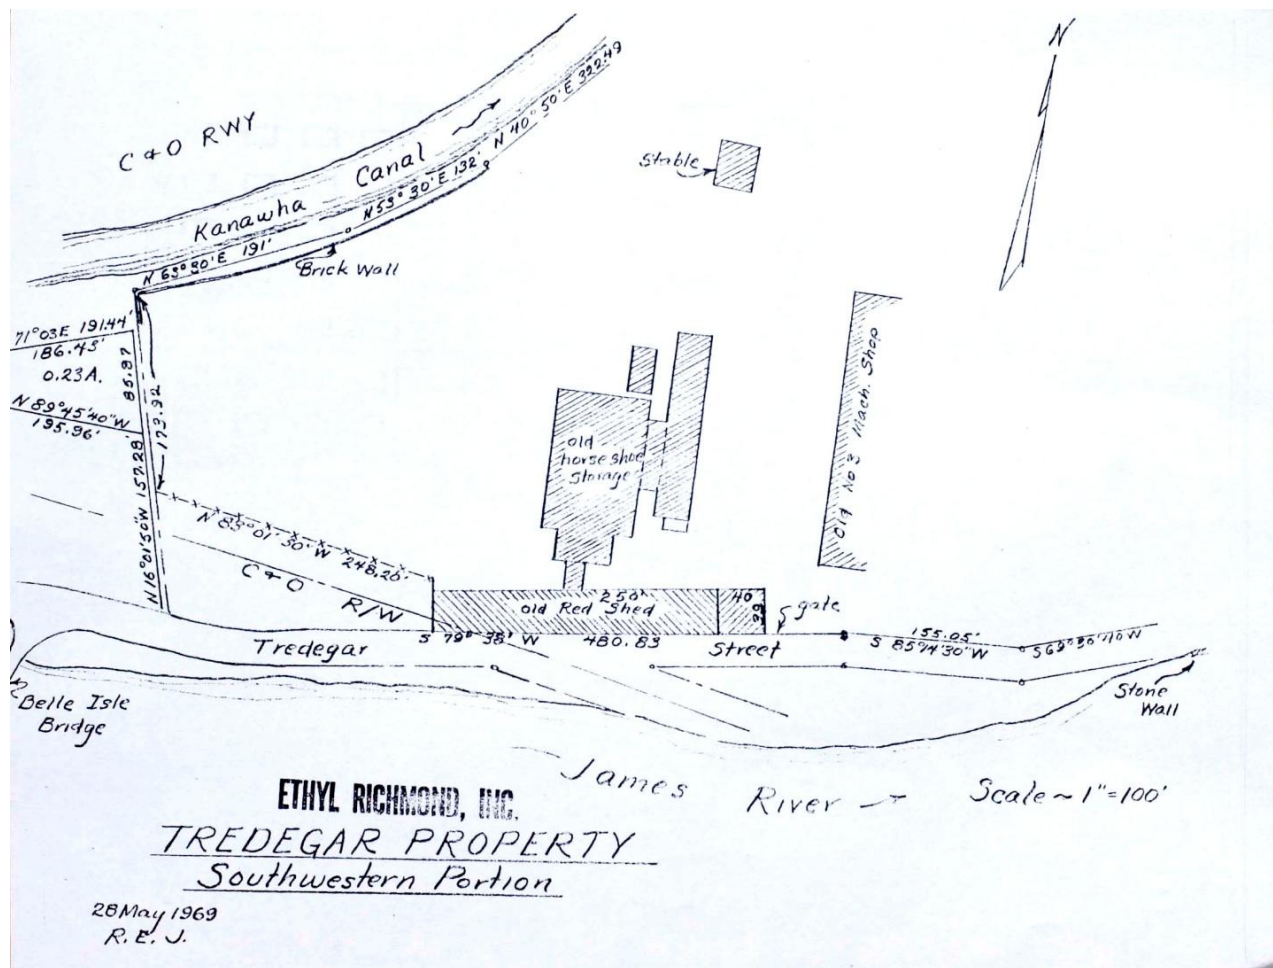 N
C & O RWY
Kanawha Canal
N 40° 50' E 322.49
N 53° 30' E 132'
N 63° 30' E 191'
Brick Wall
Stable
71°03E 191.44'
186.45'
0.23A.
85.87
173.92
N 89°45'40"W
195.96'
157.28'
N16°01'50"W
N 83° 01' 30" W 248.26'
C & O R/W
old
horse shoe
Storage
Old No 3 Mach. Shop
250'
old Red Shed
40
gate
S 79° 38' W 480.83
Tredegar Street
155.05'
S 85°14'30"W
Stone
Wall
Belle Isle
Bridge
James River
Scale ~ 1"=100'
ETHYL RICHMOND, INC.
TREDEGAR PROPERTY
Southwestern Portion
28 May 1969
R. E. J.